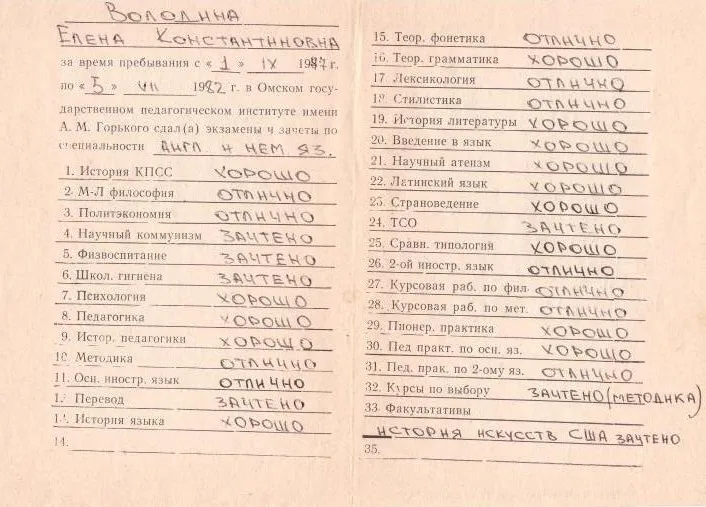 Володина
Елена Константиновна
за время пребывания с « 1 » IX 1977 г.
по « 5 » VII 1982 г. в Омском госу-
дарственном педагогическом институте имени
А. М. Горького сдал(а) экзамены и зачеты по
специальности АНГЛ. И НЕМ ЯЗ.
1. История КПСС ХОРОШО
2. М-Л философия ОТЛИЧНО
3. Политэкономия ОТЛИЧНО
4. Научный коммунизм ЗАЧТЕНО
5. Физвоспитание ЗАЧТЕНО
6. Школ. гигиена ЗАЧТЕНО
7. Психология ХОРОШО
8. Педагогика ХОРОШО
9. Истор. педагогики ХОРОШО
10. Методика ОТЛИЧНО
11. Осн. иностр. язык ОТЛИЧНО
12. Перевод ЗАЧТЕНО
13. История языка ХОРОШО
14.
15. Теор. фонетика ОТЛИЧНО
16. Теор. грамматика ХОРОШО
17. Лексикология ОТЛИЧНО
18. Стилистика ОТЛИЧНО
19. История литературы ХОРОШО
20. Введение в язык ХОРОШО
21. Научный атеизм ХОРОШО
22. Латинский язык ХОРОШО
23. Страноведение ХОРОШО
24. ТСО ЗАЧТЕНО
25. Сравн. типология ХОРОШО
26. 2-ой иностр. язык ОТЛИЧНО
27. Курсовая раб. по фил. ОТЛИЧНО
28. Курсовая раб. по мет. ОТЛИЧНО
29. Пионер. практика ХОРОШО
30. Пед практ. по осн. яз. ХОРОШО
31. Пед. прак. по 2-ому яз. ОТЛИЧНО
32. Курсы по выбору ЗАЧТЕНО (МЕТОДИКА)
33. Факультативы
ИСТОРИЯ ИСКУССТВ США ЗАЧТЕНО
35.